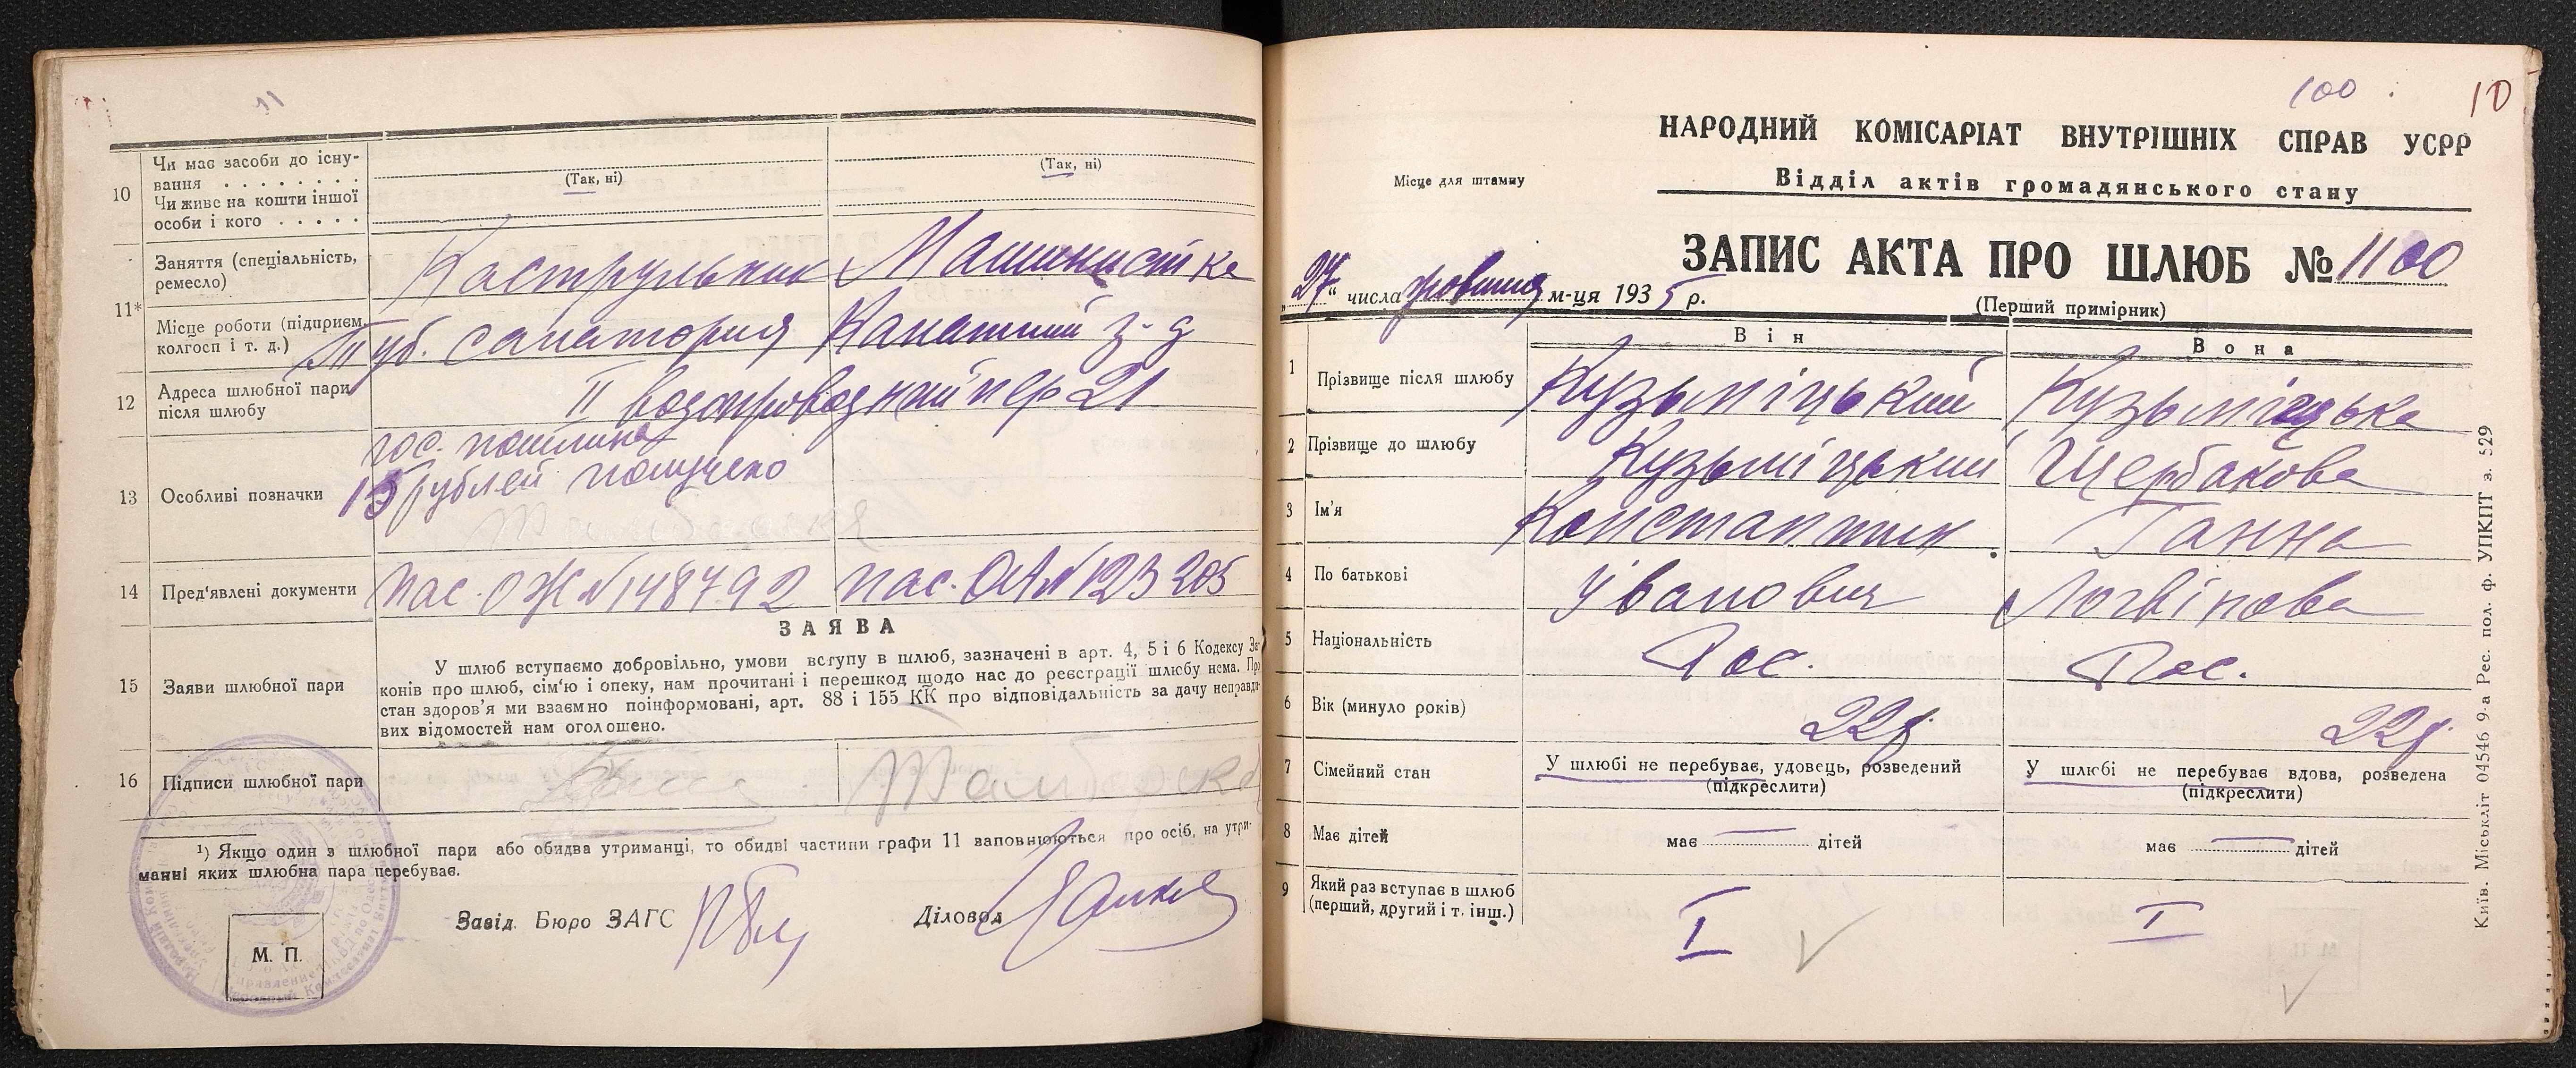 10 Чи має засоби до існу-
вання . . . . . . . .
Чи живе на кошти іншої
особи і кого . . . . .
(Так, ні) (Так, ні)
11* Заняття (спеціальність,
ремесло) Каструльник Машинистка
Місце роботи (підприєм.
колгосп і т. д.) Туб. санатория Канатний з-д
12 Адреса шлюбної пари
після шлюбу II водопроводний пер 21
13 Особливі позначки гос. пошлина
15 рублей получено
14 Пред'явлені документи пас. ОЖ №148792 пас. ОА № 123205
ЗАЯВА
15 Заяви шлюбної пари
У шлюб вступаємо добровільно, умови вступу в шлюб, зазначені в арт. 4, 5 і 6 Кодексу За-
конів про шлюб, сім'ю і опеку, нам прочитані і перешкод щодо нас до реєстрації шлюбу нема. Про
стан здоров'я ми взаємно поінформовані, арт. 88 і 155 КК про відповідальність за дачу неправди-
вих відомостей нам оголошено.
16 Підписи шлюбної пари
¹) Якщо один з шлюбної пари або обидва утриманці, то обидві частини графи 11 заповнюються про осіб, на утри-
манні яких шлюбна пара перебуває.
Завід. Бюро ЗАГС Діловод
М. П.
100 10
НАРОДНИЙ КОМІСАРІАТ ВНУТРІШНІХ СПРАВ УСРР
Відділ актів громадянського стану
Місце для штампу
ЗАПИС АКТА ПРО ШЛЮБ № 1100
(Перший примірник)
„27“ числа жовтня м-ця 1935 р.
Він Вона
1 Прізвище після шлюбу Кузьміцький Кузьміцька
2 Прізвище до шлюбу Кузьміцький Щербакова
3 Ім'я Константин Ганна
4 По батькові Іванович Логвінова
5 Національність Рос. Рос.
6 Вік (минуло років) 22р 22р
7 Сімейний стан У шлюбі не перебуває, удовець, розведений
(підкреслити)
У шлюбі не перебуває вдова, розведена
(підкреслити)
8 Має дітей має — дітей має — дітей
9 Який раз вступає в шлюб
(перший, другий і т. інш.) I I
Київ. Міськліт 04546 9-а Рес. пол. ф. УПКПТ з. 529